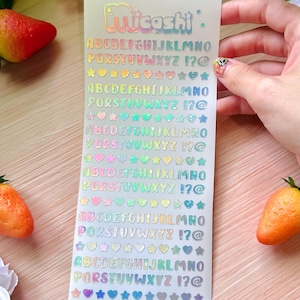 Micoshi
ABCDEFGHIJKLMNO
PQRSTUVWXYZ !?@
ABCDEFGHIJKLMNO
PQRSTUVWXYZ !?@
ABCDEFGHIJKLMNO
PQRSTUVWXYZ !?@
ABCDEFGHIJKLMNO
PQRSTUVWXYZ !?@
ABCDEFGHIJKLMNO
PQRSTUVWXYZ !?@
ABCDEFGHIJKLMNO
PQRSTUVWXYZ !?@